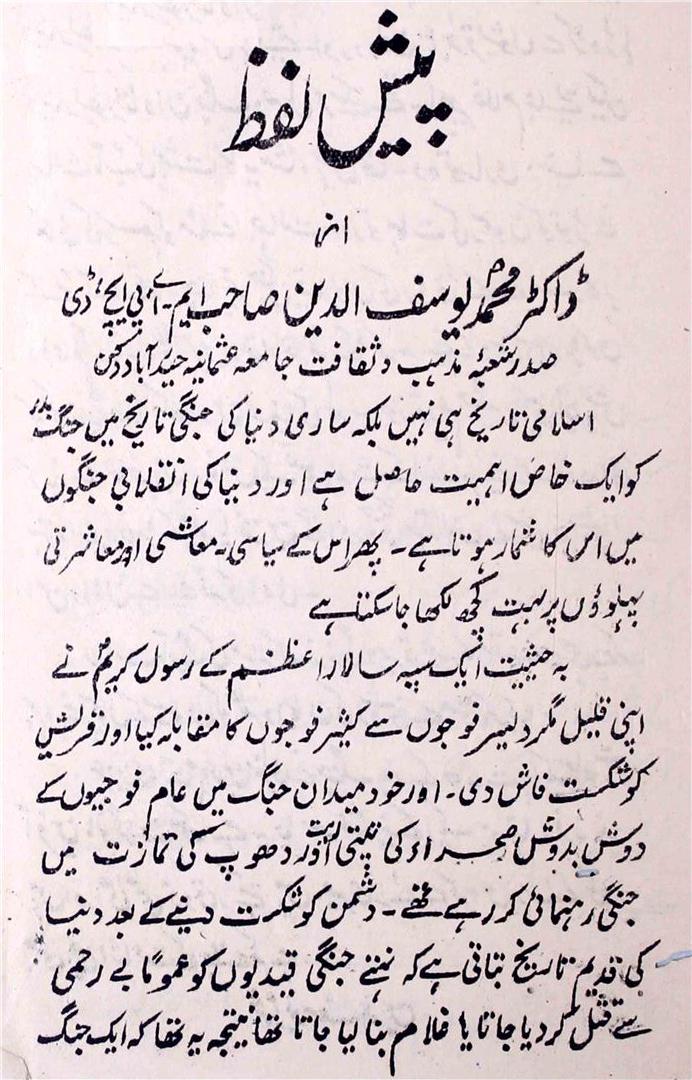 پیش لفظ
از
ڈاکٹر محمد یوسف الدین صاحب ایم۔اے، پی ایچ، ڈی
صدر شعبۂ مذہب و ثقافت جامعہ عثمانیہ حیدآباد دکن
اسلامی تاریخ ہی نہیں بلکہ ساری دنیا کی جنگی تاریخ میں جنگ بدر
کو ایک خاص اہمیت حاصل ہے اور دنیا کی انقلابی جنگوں
میں اس کا شمار ہوتا ہے۔ پھر اس کے سیاسی۔ معاشی اور معاشرتی
پہلوؤں پر بہت کچھ لکھا جا سکتا ہے
بہ حیثیت ایک سپہ سالار اعظم کے رسول کریمؐ نے
اپنی قلیل مگر دلیر فوجوں سے کثیر فوجوں کا مقابلہ کیا اور قریش
کو شکست فاش دی۔ اور خود میدان جنگ میں عام فوجیوں کے
دوش بدوش صحراء کی تپتی ریت اور دھوپ کی تمازت میں
جنگی رہنمائی کر رہے تھے۔ دشمن کو شکست دینے کے بعد دنیا
کی قدیم تاریخ بتاتی ہے کہ نہتے جنگی قیدیوں کو عموماً بے رحمی
سے قتل کر دیا جاتا یا غلام بنا لیا جاتا تھا نتیجہ یہ تھا کہ ایک جنگ